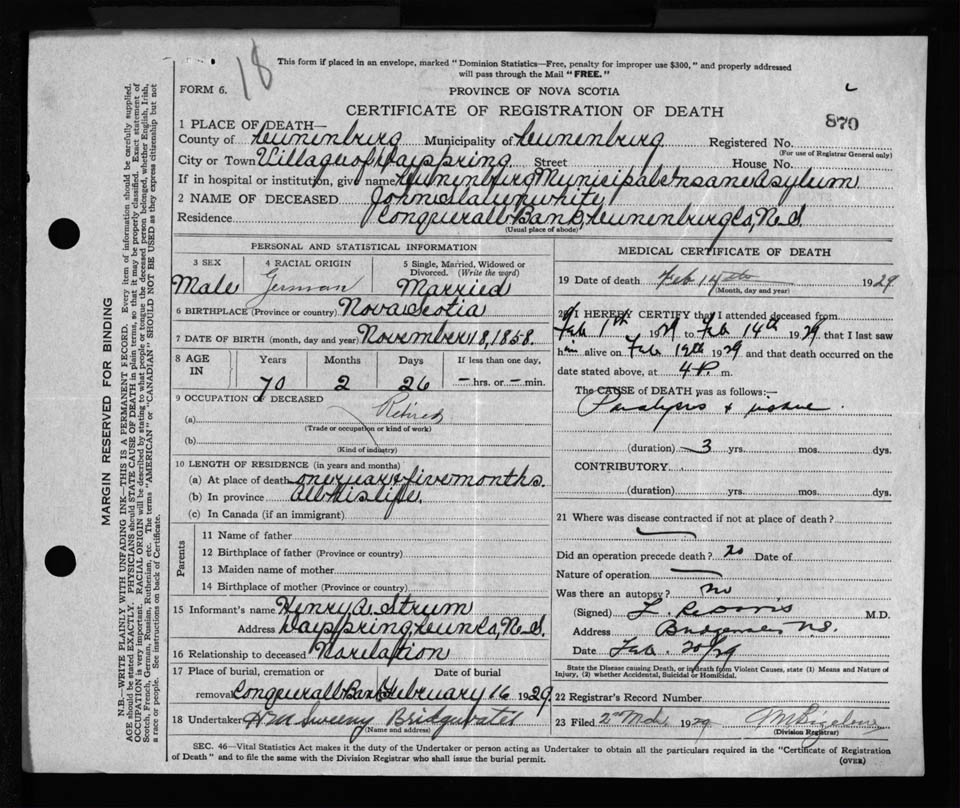 18
This form if placed in an envelope, marked "Dominion Statistics—Free, penalty for improper use $300," and properly addressed
will pass through the Mail "FREE."
FORM 6.
PROVINCE OF NOVA SCOTIA
CERTIFICATE OF REGISTRATION OF DEATH
870
1 PLACE OF DEATH—
County of Lunenburg Municipality of Lunenburg Registered No.
(For use of Registrar General only)
City or Town Village of Dayspring Street House No.
If in hospital or institution, give name Lunenburg Municipal Insane Asylum
2 NAME OF DECEASED John Slaunwhite
Residence Conquerall Bank, Lunenburg Co, N.S.
(Usual place of abode)
PERSONAL AND STATISTICAL INFORMATION
3 SEX
Male
4 RACIAL ORIGIN
German
5 Single, Married, Widowed or
Divorced. (Write the word)
Married
6 BIRTHPLACE (Province or country) Nova Scotia
7 DATE OF BIRTH (month, day and year) November 18, 1858.
8 AGE IN
Years Months Days If less than one day,
70 2 26 — hrs. or — min.
9 OCCUPATION OF DECEASED
(a) Retired
(Trade or occupation or kind of work)
(b)
(Kind of industry)
10 LENGTH OF RESIDENCE (in years and months)
(a) At place of death one year & five months.
(b) In province all his life.
(c) In Canada (if an immigrant)
Parents
11 Name of father
12 Birthplace of father (Province or country)
13 Maiden name of mother
14 Birthplace of mother (Province or country)
15 Informant's name Henry A. Strum
Address Dayspring, Lun Co, N.S.
16 Relationship to deceased No relation
17 Place of burial, cremation or Date of burial
removal Conquerall Bank February 16 1929.
18 Undertaker H M Sweeny Bridgwater
(Name and address)
MEDICAL CERTIFICATE OF DEATH
19 Date of death Feb 14th 1929
(Month, day and year)
20 I HEREBY CERTIFY that I attended deceased from
Feb 1th 1929 to Feb 14th 1929 that I last saw
him alive on Feb 1929 and that death occurred on the
date stated above, at 4 P. m.
The CAUSE of DEATH was as follows:—
Paralysis
(duration) 3 yrs. mos. dys.
CONTRIBUTORY
(duration) yrs. mos. dys.
21 Where was disease contracted if not at place of death?
Did an operation precede death? no Date of
Nature of operation
Was there an autopsy? no
(Signed) M.D.
Address N.S.
Date Feb. 20/29
State the Disease causing Death, or in death from Violent Causes, state (1) Means and Nature of
Injury, (2) whether Accidental, Suicidal or Homicidal.
22 Registrar's Record Number
23 Filed 2nd Mch 1929
(Division Registrar)
SEC. 46—Vital Statistics Act makes it the duty of the Undertaker or person acting as Undertaker to obtain all the particulars required in the "Certificate of Registration
of Death" and to file the same with the Division Registrar who shall issue the burial permit.
(OVER)
MARGIN RESERVED FOR BINDING
N.B.—WRITE PLAINLY WITH UNFADING INK—THIS IS A PERMANENT RECORD. Every item of information should be carefully supplied.
AGE should be stated EXACTLY. PHYSICIANS should STATE CAUSE OF DEATH in plain terms, so that it may be properly classified. Exact statement of
OCCUPATION is very important. RACIAL ORIGIN will be described by stating to what people or tongue the deceased person belonged, whether English, Irish,
Scotch, French, German, Russian, Ruthenian, etc. The terms "AMERICAN" or "CANADIAN" SHOULD NOT BE USED as they express citizenship but not
a race or people. See instructions on back of Certificate.